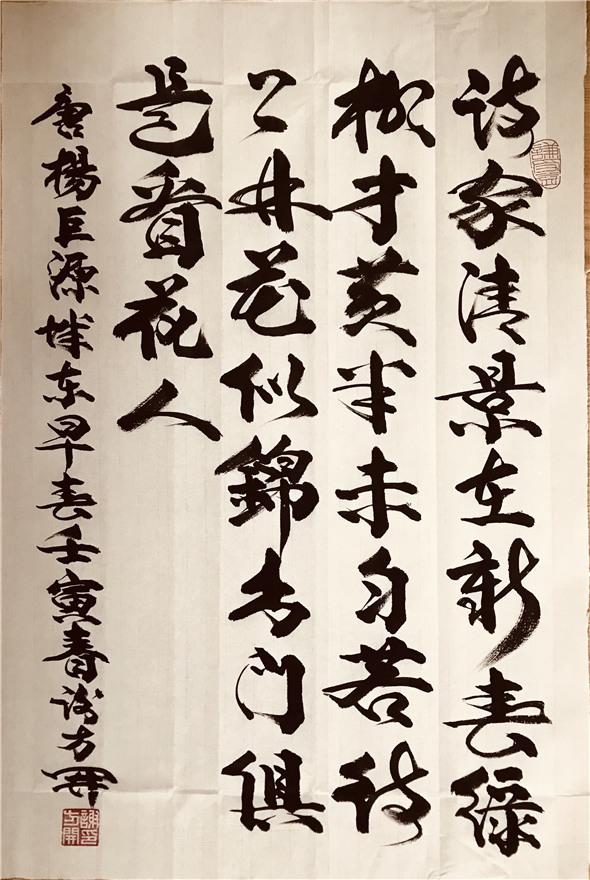 诗家清景在新春绿
柳才黄半未匀若待
上林花似錦出门俱
是看花人
唐楊巨源城东早春壬寅春谢方開